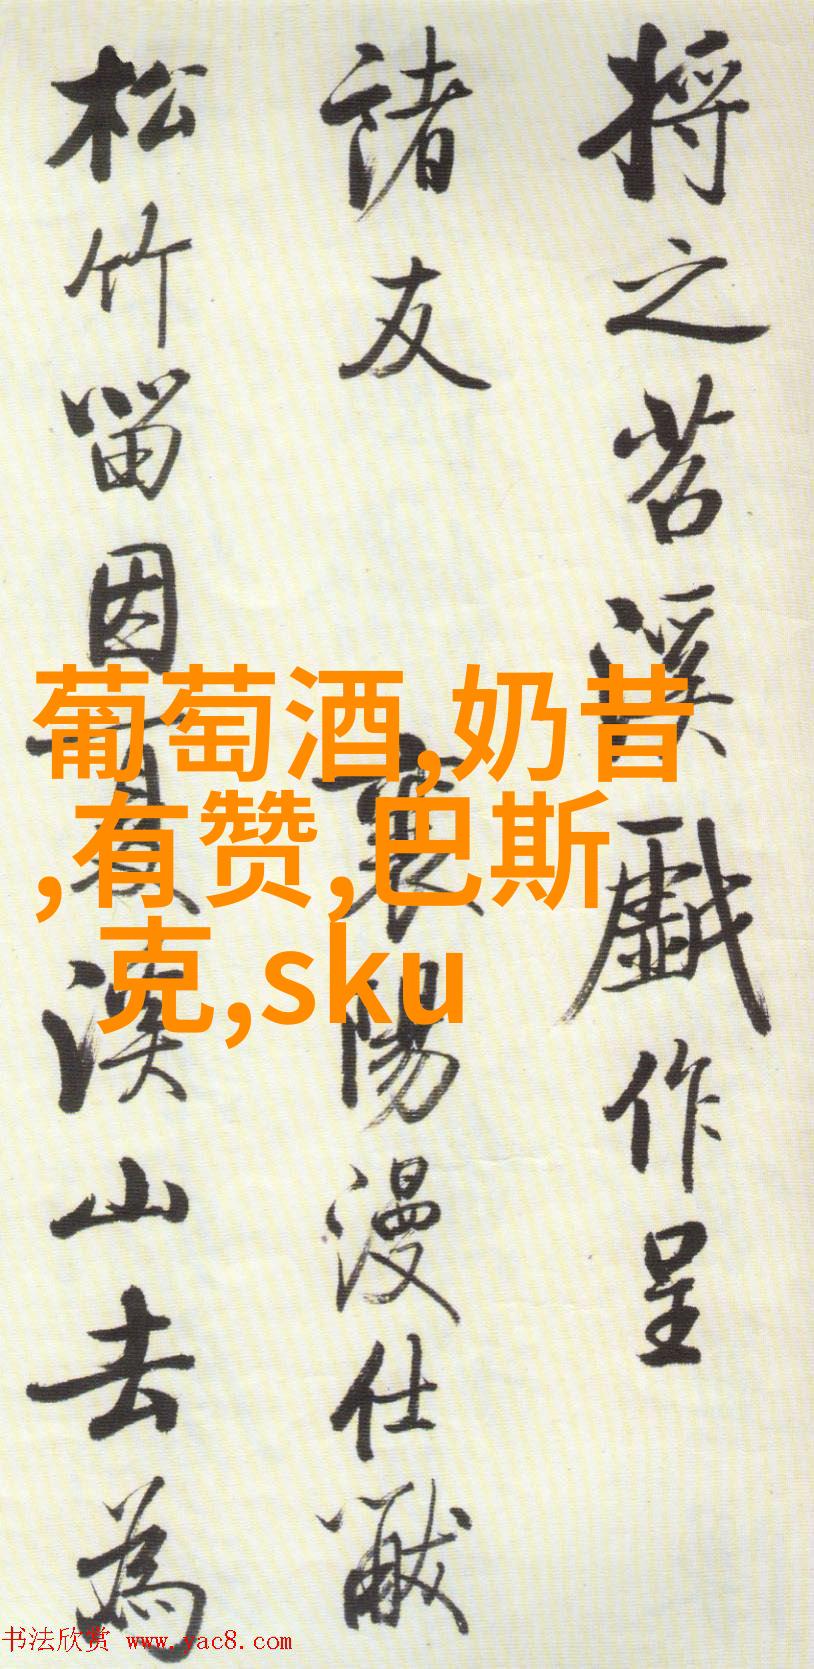 将之苕溪戲作呈
諸友
襄陽漫仕黻
松竹留因夏溪山去為
葡萄酒,奶昔
,有赞,巴斯
克,sku
书法欣赏 www.yac8.com